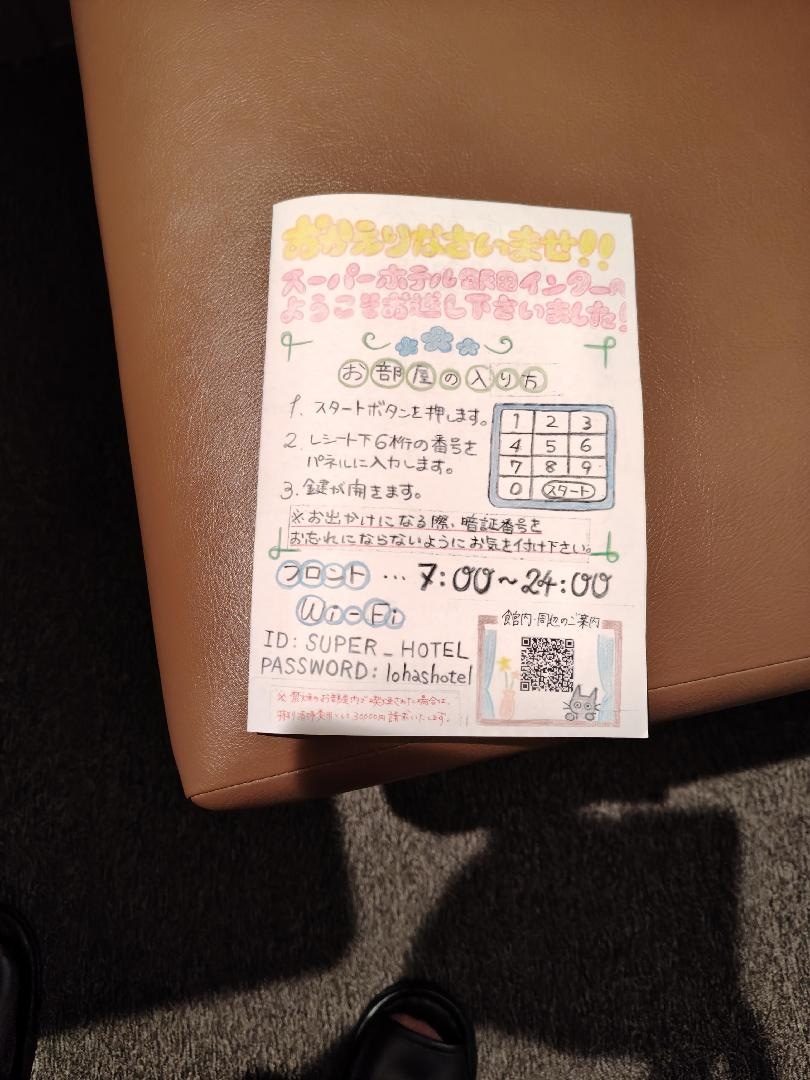 おかえりなさいませ!!
スーパーホテル飯田インターへ
ようこそお越し下さいました!
お部屋の入り方
1. スタートボタンを押します。
2. レシート下6桁の番号を
パネルに入力します。
3. 鍵が開きます。
1 2 3
4 5 6
7 8 9
0 スタート
※お出かけになる際、暗証番号を
お忘れにならないようにお気を付け下さい。
フロント … 7:00~24:00
Wi-Fi
ID: SUPER_HOTEL
PASSWORD: lohashotel
館内・周辺のご案内
※禁煙のお部屋内で喫煙された場合は、
特別清掃費用として30000円請求いたします。